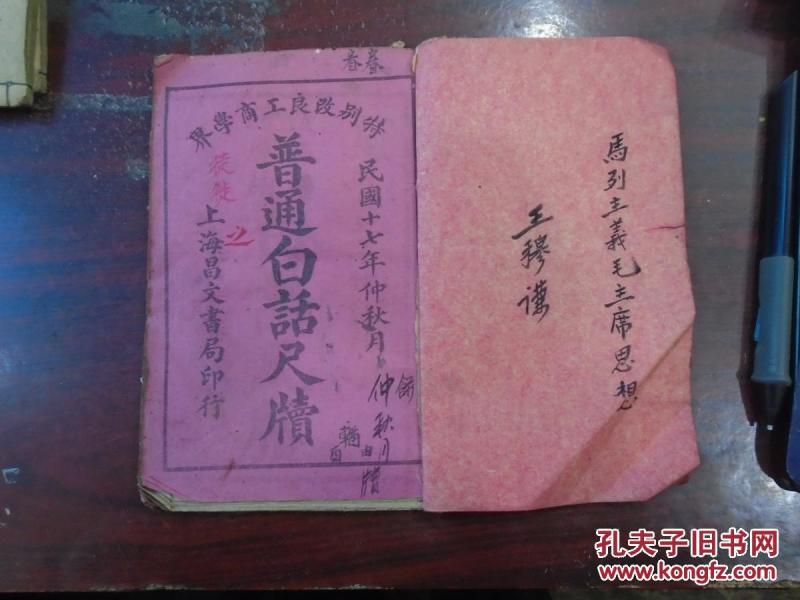 馬列主義毛主席思想
王穆謹
春春
特別改良工商學界
民國十七年仲秋月
普通白話尺牘
上海昌文書局印行
徒徒
之
仲秋月
孔夫子旧书网
www.kongfz.com